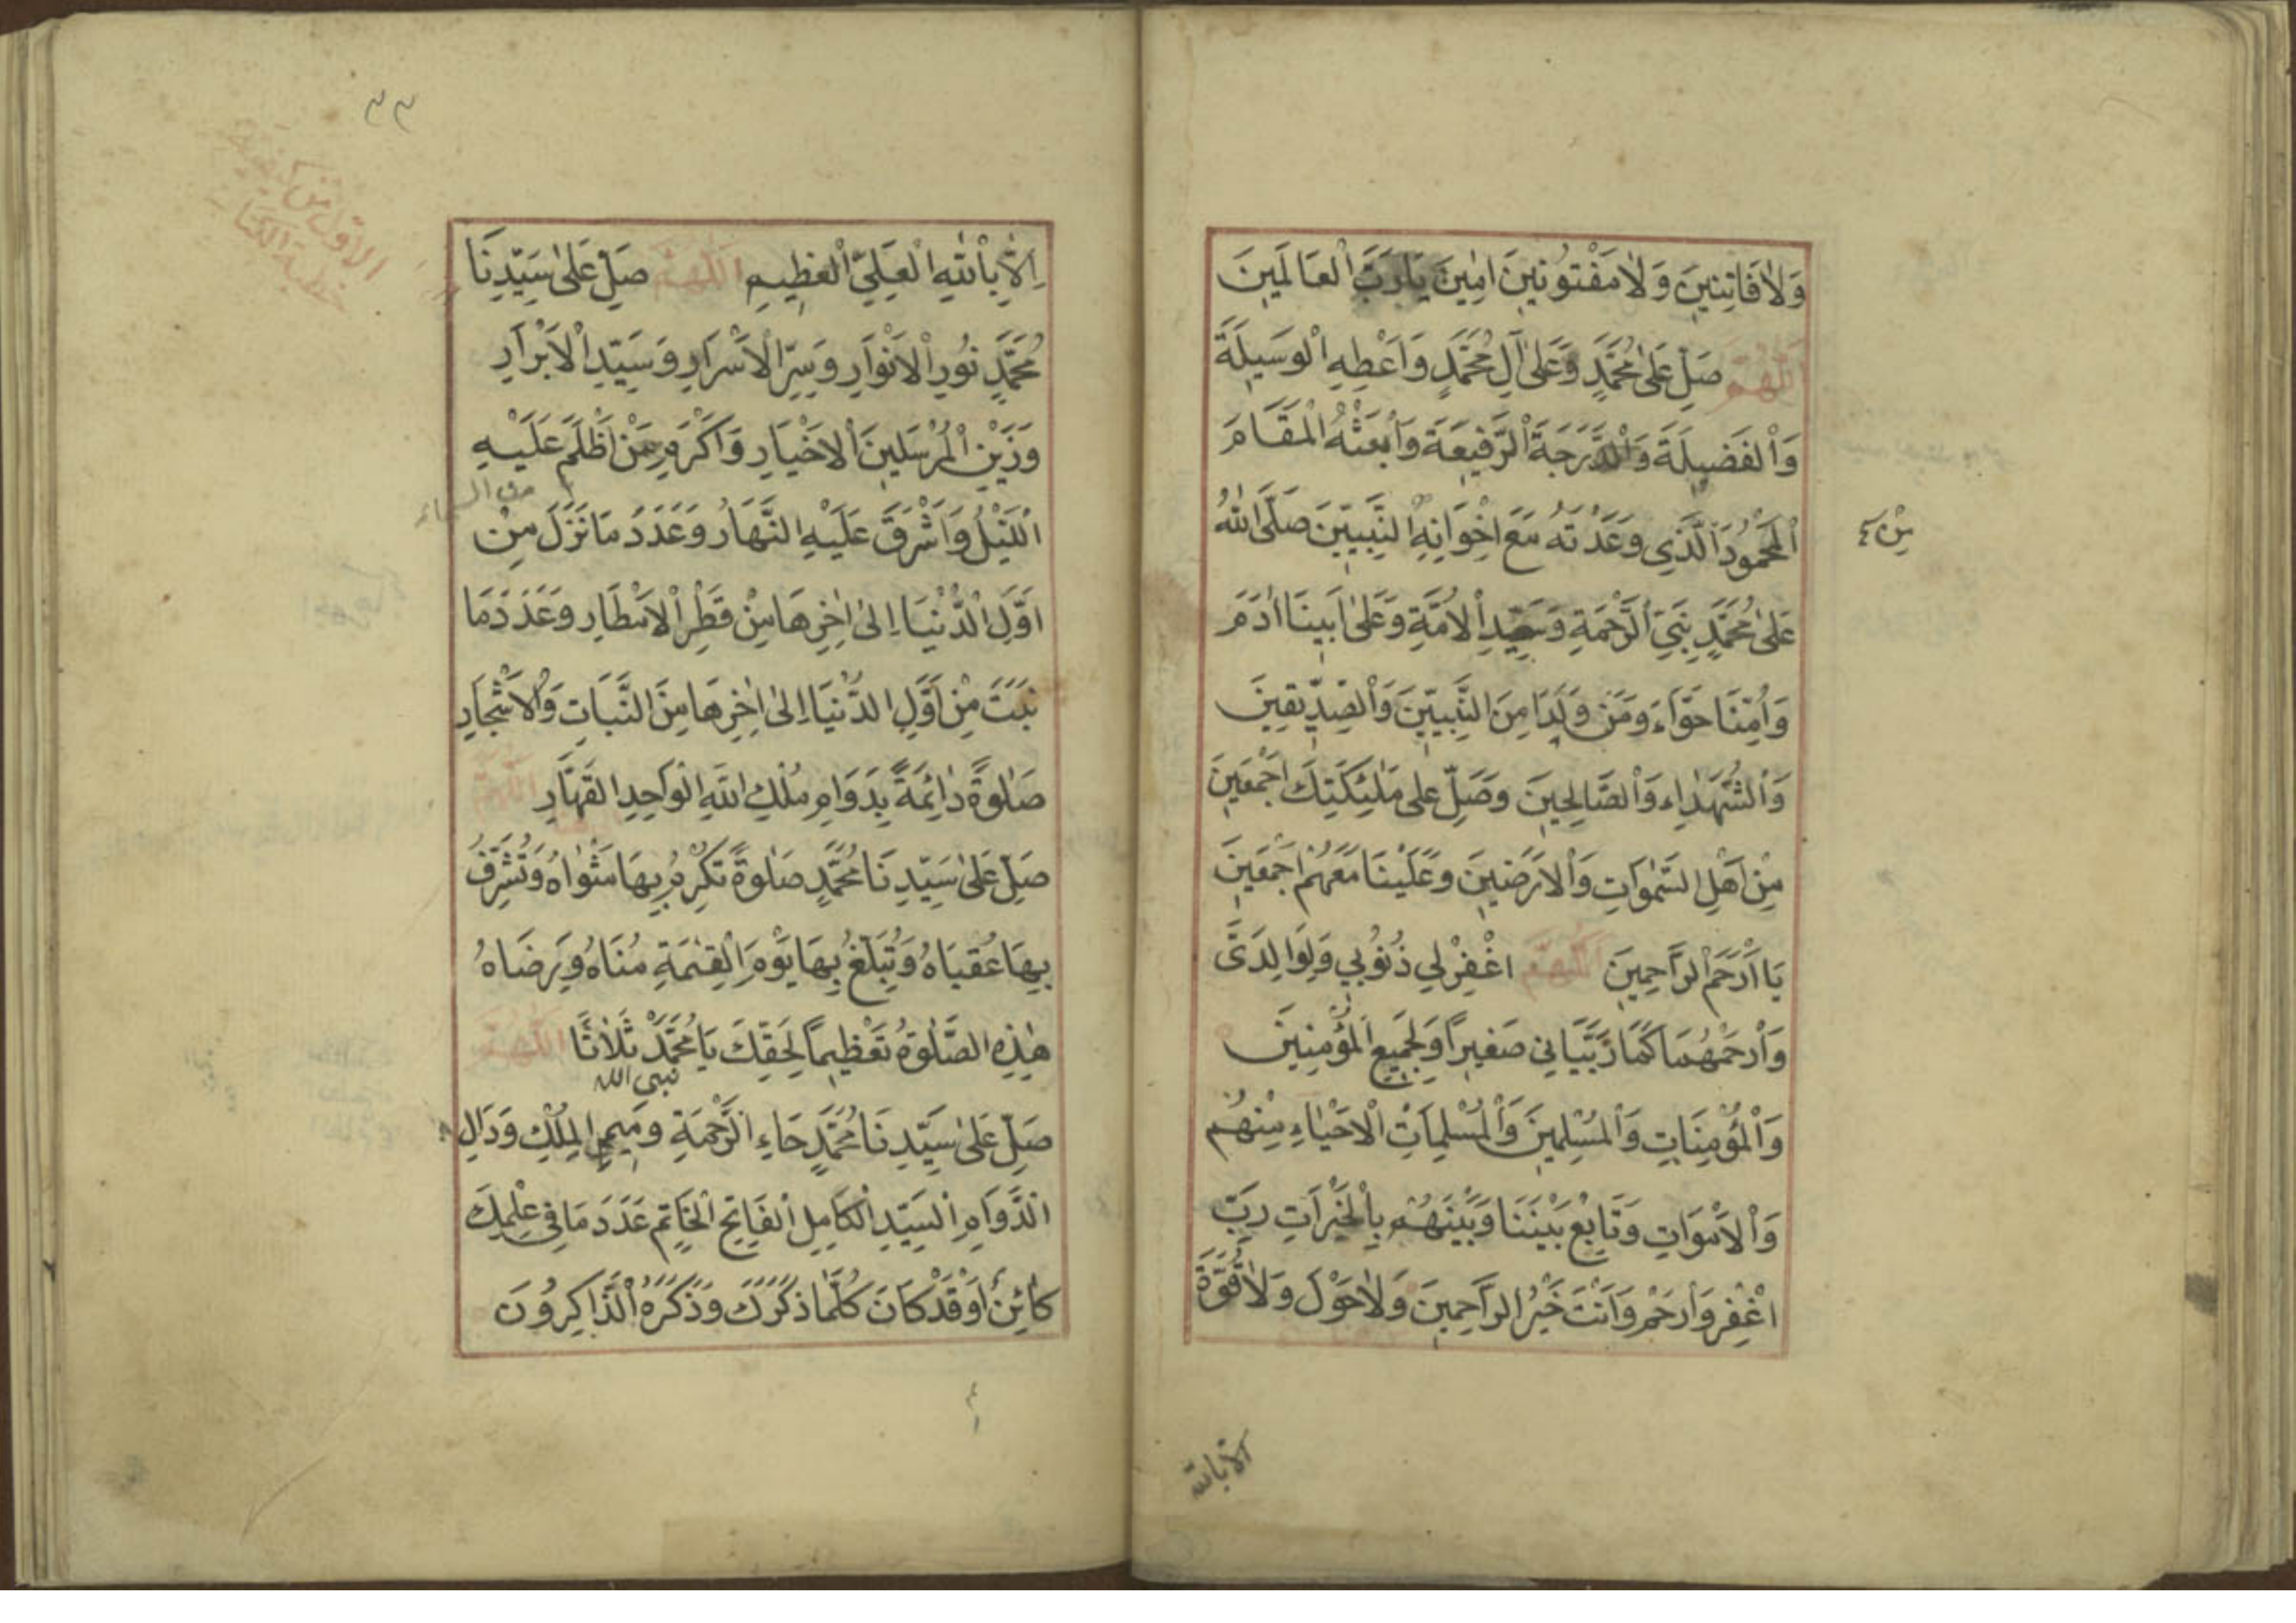 وَلَا فَاتِنِينَ وَلَا مَفْتُونِينَ اٰمِينَ يَارَبَّ الْعَالَمِينَ
اَللّٰهُمَّ صَلِّ عَلٰى مُحَمَّدٍ وَعَلٰى آلِ مُحَمَّدٍ وَاَعْطِهِ الْوَسِيلَةَ
وَالْفَضِيلَةَ وَالدَّرَجَةَ الرَّفِيعَةَ وَابْعَثْهُ الْمَقَامَ
الْمَحْمُودَ الَّذِي وَعَدْتَهُ مَعَ اِخْوَانِهِ النَّبِيِّينَ صَلَّى اللّٰهُ
عَلٰى مُحَمَّدٍ نَبِيِّ الرَّحْمَةِ وَسَيِّدِ الْاُمَّةِ وَعَلٰى اَبِينَا اٰدَمَ
وَاُمِّنَا حَوَّاءَ وَمَنْ وَلَدَا مِنَ النَّبِيِّينَ وَالصِّدِّيقِينَ
وَالشُّهَدَاءِ وَالصَّالِحِينَ وَصَلِّ عَلٰى مَلٰئِكَتِكَ اَجْمَعِينَ
مِنْ اَهْلِ السَّمٰوَاتِ وَالْاَرَضِينَ وَعَلَيْنَا مَعَهُمْ اَجْمَعِينَ
يَا اَرْحَمَ الرَّاحِمِينَ اَللّٰهُمَّ اغْفِرْ لِي ذُنُوبِي وَلِوَالِدَيَّ
وَارْحَمْهُمَا كَمَا رَبَّيَانِي صَغِيرًا وَلِجَمِيعِ الْمُؤْمِنِينَ
وَالْمُؤْمِنَاتِ وَالْمُسْلِمِينَ وَالْمُسْلِمَاتِ الْاَحْيَاءِ مِنْهُمْ
وَالْاَمْوَاتِ وَتَابِعْ بَيْنَنَا وَبَيْنَهُمْ بِالْخَيْرَاتِ رَبِّ
اغْفِرْ وَارْحَمْ وَاَنْتَ خَيْرُ الرَّاحِمِينَ وَلَا حَوْلَ وَلَا قُوَّةَ
الا بالله
٣٣
الاول من
خطبة الكتاب
اِلَّا بِاللّٰهِ الْعَلِيِّ الْعَظِيمِ اَللّٰهُمَّ صَلِّ عَلٰى سَيِّدِنَا
مُحَمَّدٍ نُورِ الْاَنْوَارِ وَسِرِّ الْاَسْرَارِ وَسَيِّدِ الْاَبْرَارِ
وَزَيْنِ الْمُرْسَلِينَ الْاَخْيَارِ وَاَكْرَمِ مَنْ اَظْلَمَ عَلَيْهِ
اللَّيْلُ وَاَشْرَقَ عَلَيْهِ النَّهَارُ وَعَدَدَ مَا نَزَلَ مِنْ
اَوَّلِ الدُّنْيَا اِلٰى اٰخِرِهَا مِنْ قَطْرِ الْاَمْطَارِ وَعَدَدَ مَا
نَبَتَ مِنْ اَوَّلِ الدُّنْيَا اِلٰى اٰخِرِهَا مِنَ النَّبَاتِ وَالْاَشْجَارِ
صَلٰوةً دَائِمَةً بِدَوَامِ مُلْكِ اللّٰهِ الْوَاحِدِ الْقَهَّارِ اَللّٰهُمَّ
صَلِّ عَلٰى سَيِّدِنَا مُحَمَّدٍ صَلٰوةً تُكْرِمُ بِهَا مَثْوَاهُ وَتُشَرِّفُ
بِهَا عُقْبَاهُ وَتُبَلِّغُ بِهَا يَوْمَ الْقِيٰمَةِ مُنَاهُ وَرِضَاهُ
هٰذِهِ الصَّلٰوةُ تَعْظِيمًا لِحَقِّكَ يَا مُحَمَّدُ ثَلَاثًا اَللّٰهُمَّ
نبي الله
صَلِّ عَلٰى سَيِّدِنَا مُحَمَّدٍ حَاءِ الرَّحْمَةِ وَمِيمِ الْمُلْكِ وَدَالِ
الدَّوَامِ السَّيِّدِ الْكَامِلِ الْفَاتِحِ الْخَاتِمِ عَدَدَ مَا فِي عِلْمِكَ
كَائِنٌ اَوْ قَدْ كَانَ كُلَّمَا ذَكَرَكَ وَذَكَرَهُ الذَّاكِرُونَ